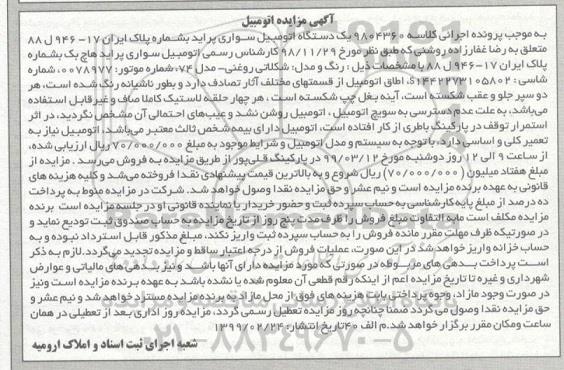 آگهی مزایده اتومبیل
به موجب پرونده اجرائی کلاسه 9804360 یک دستگاه اتومبیل سواری پراید بشماره پلاک ایران 17-946 ل 88
متعلق به رضا غفارزاده روشنی که طبق نظر مورخ 98/11/29 کارشناس رسمی اتومبیل سواری پراید هاچ بک بشماره
پلاک ایران 17-946 ل 88 با مشخصات ذیل: رنگ و مدل: شکلاتی روغنی- مدل 74، شماره موتور: 0078977، شماره
شاسی: S1442273105802، اطاق اتومبیل از قسمتهای مختلف آثار تصادف دارد و بطور ناشیانه رنگ شده است، هر
دو سپر جلو و عقب شکسته است، آینه بغل چپ شکسته است، هر چهار حلقه لاستیک کاملا صاف و غیر قابل استفاده
می‌باشد، به علت عدم دسترسی به سویچ اتومبیل، اتومبیل روشن نشد و عیب‌های احتمالی آن مشخص نگردید، در اثر
استمرار توقف در پارکینگ باطری از کار افتاده است، اتومبیل دارای بیمه شخص ثالث معتبر می‌باشد. اتومبیل نیاز به
تعمیر کلی و اساسی دارد، با توجه به سیستم و مدل اتومبیل و شرایط موجود به مبلغ 70/000/000 ریال ارزیابی شده،
از ساعت 9 الی 12 روز دوشنبه مورخ 99/03/12 در پارکینگ قلی‌پور از طریق مزایده به فروش می‌رسد. مزایده از
مبلغ هفتاد میلیون (70/000/000) ریال شروع و به بالاترین قیمت پیشنهادی نقدا فروخته می‌شد و کلیه هزینه های
قانونی به عهده برنده مزایده است و نیم عشر و حق مزایده نقدا وصول خواهد شد. شرکت در مزایده منوط به پرداخت
ده درصد از مبلغ پایه کارشناسی به حساب سپرده ثبت و حضور خریدار یا نماینده قانونی او در جلسه مزایده است برنده
مزایده مکلف است مابه التفاوت مبلغ فروش را ظرف مدت پنج روز از تاریخ مزایده به حساب صندوق ثبت تودیع نماید و
در صورتیکه ظرف مهلت مقرر مانده فروش را به حساب سپرده ثبت واریز نکند، مبلغ مذکور قابل استرداد نبوده و به
حساب خزانه واریز خواهد شد در این صورت، عملیات فروش از درجه اعتبار ساقط و مزایده تجدید می‌گردد. لازم به ذکر
است پرداخت بدهی های مربوطه در صورتی که مورد مزایده دارای آنها باشد و نیز بدهی های مالیاتی و عوارض
شهرداری و غیره تا تاریخ مزایده اعم از اینکه رقم قطعی آن معلوم شده یا نشده باشد به عهده برنده مزایده است و نیز
در صورت وجود مازاد، وجوه پرداختی بابت هزینه های فوق از محل مازاد به برنده مزایده مسترد خواهد شد و نیم عشر و
حق مزایده نقدا وصول می گردد ضمنا چنانچه روز مزایده تعطیل رسمی گردد، مزایده روز اداری بعد از تعطیلی در همان
ساعت ومکان مقرر برگزار خواهد شد. م الف 40 تاریخ انتشار: 1399/02/24
شعبه اجرای ثبت اسناد و املاک ارومیه
021-88349670-5